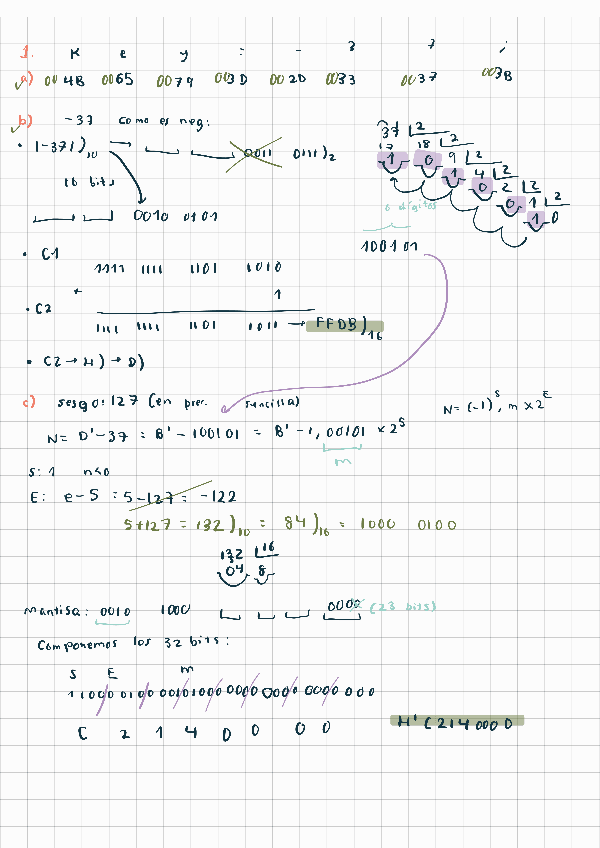 1. K e y = - 3 7 ;
a) 004B 0065 0079 003D 002D 0033 0037 003B
b) -37 como es neg:
• |-37|)10 → 0011 0111)2
16 bits
0010 0101
37 |2
17 18 |2
1 0 9 |2
1 4 |2
0 2 |2
0 1 |2
1 0
6 dígitos
100101
• C1 1111 1111 1101 1010
+ 1
• C2 1111 1111 1101 1011 → FFDB)16
• C2 → H) → D)
c) sesgo: 127 (en prec. sencilla)
N = (-1)^S, m x 2^E
N = D'-37 = B'-100101 = B'-1,00101 x 2^5
m
S: 1 n<0
E: e-S = 5-127 = -122
5+127 = 132)10 = 84)16 = 1000 0100
132 |16
04 8
Mantisa: 0010 1000 0000 (23 bits)
Componemos los 32 bits:
S E m
1 1000 0100 00101000 0000 0000 0000 000
C 2 1 4 0 0 0 0
H'C2140000